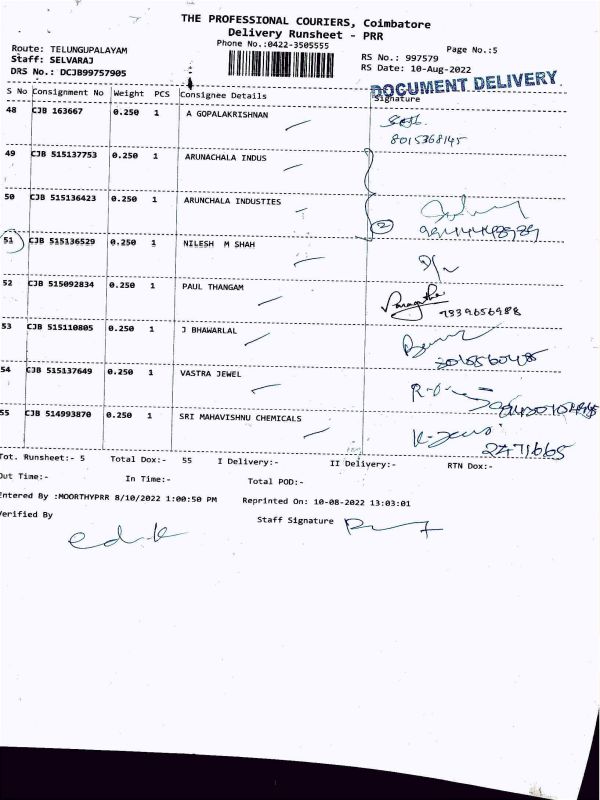 THE PROFESSIONAL COURIERS, Coimbatore
Delivery Runsheet - PRR
Phone No.:0422-3505555
Route: TELUNGUPALAYAM
Staff: SELVARAJ
DRS No.: DCJB99757905
Page No.:5
RS No.: 997579
RS Date: 10-Aug-2022
DOCUMENT DELIVERY
S No Consignment No Weight PCS Consignee Details Signature
48 CJB 163667 0.250 1 A GOPALAKRISHNAN
8015368145
49 CJB 515137753 0.250 1 ARUNACHALA INDUS
50 CJB 515136423 0.250 1 ARUNCHALA INDUSTIES
2
51 CJB 515136529 0.250 1 NILESH M SHAH
52 CJB 515092834 0.250 1 PAUL THANGAM
7339656988
53 CJB 515110805 0.250 1 J BHAWARLAL
54 CJB 515137649 0.250 1 VASTRA JEWEL
55 CJB 514993870 0.250 1 SRI MAHAVISHNU CHEMICALS
2471665
Tot. Runsheet:- 5 Total Dox:- 55 I Delivery:- II Delivery:- RTN Dox:-
Out Time:- In Time:- Total POD:-
Entered By :MOORTHYPRR 8/10/2022 1:00:50 PM Reprinted On: 10-08-2022 13:03:01
Verified By Staff Signature